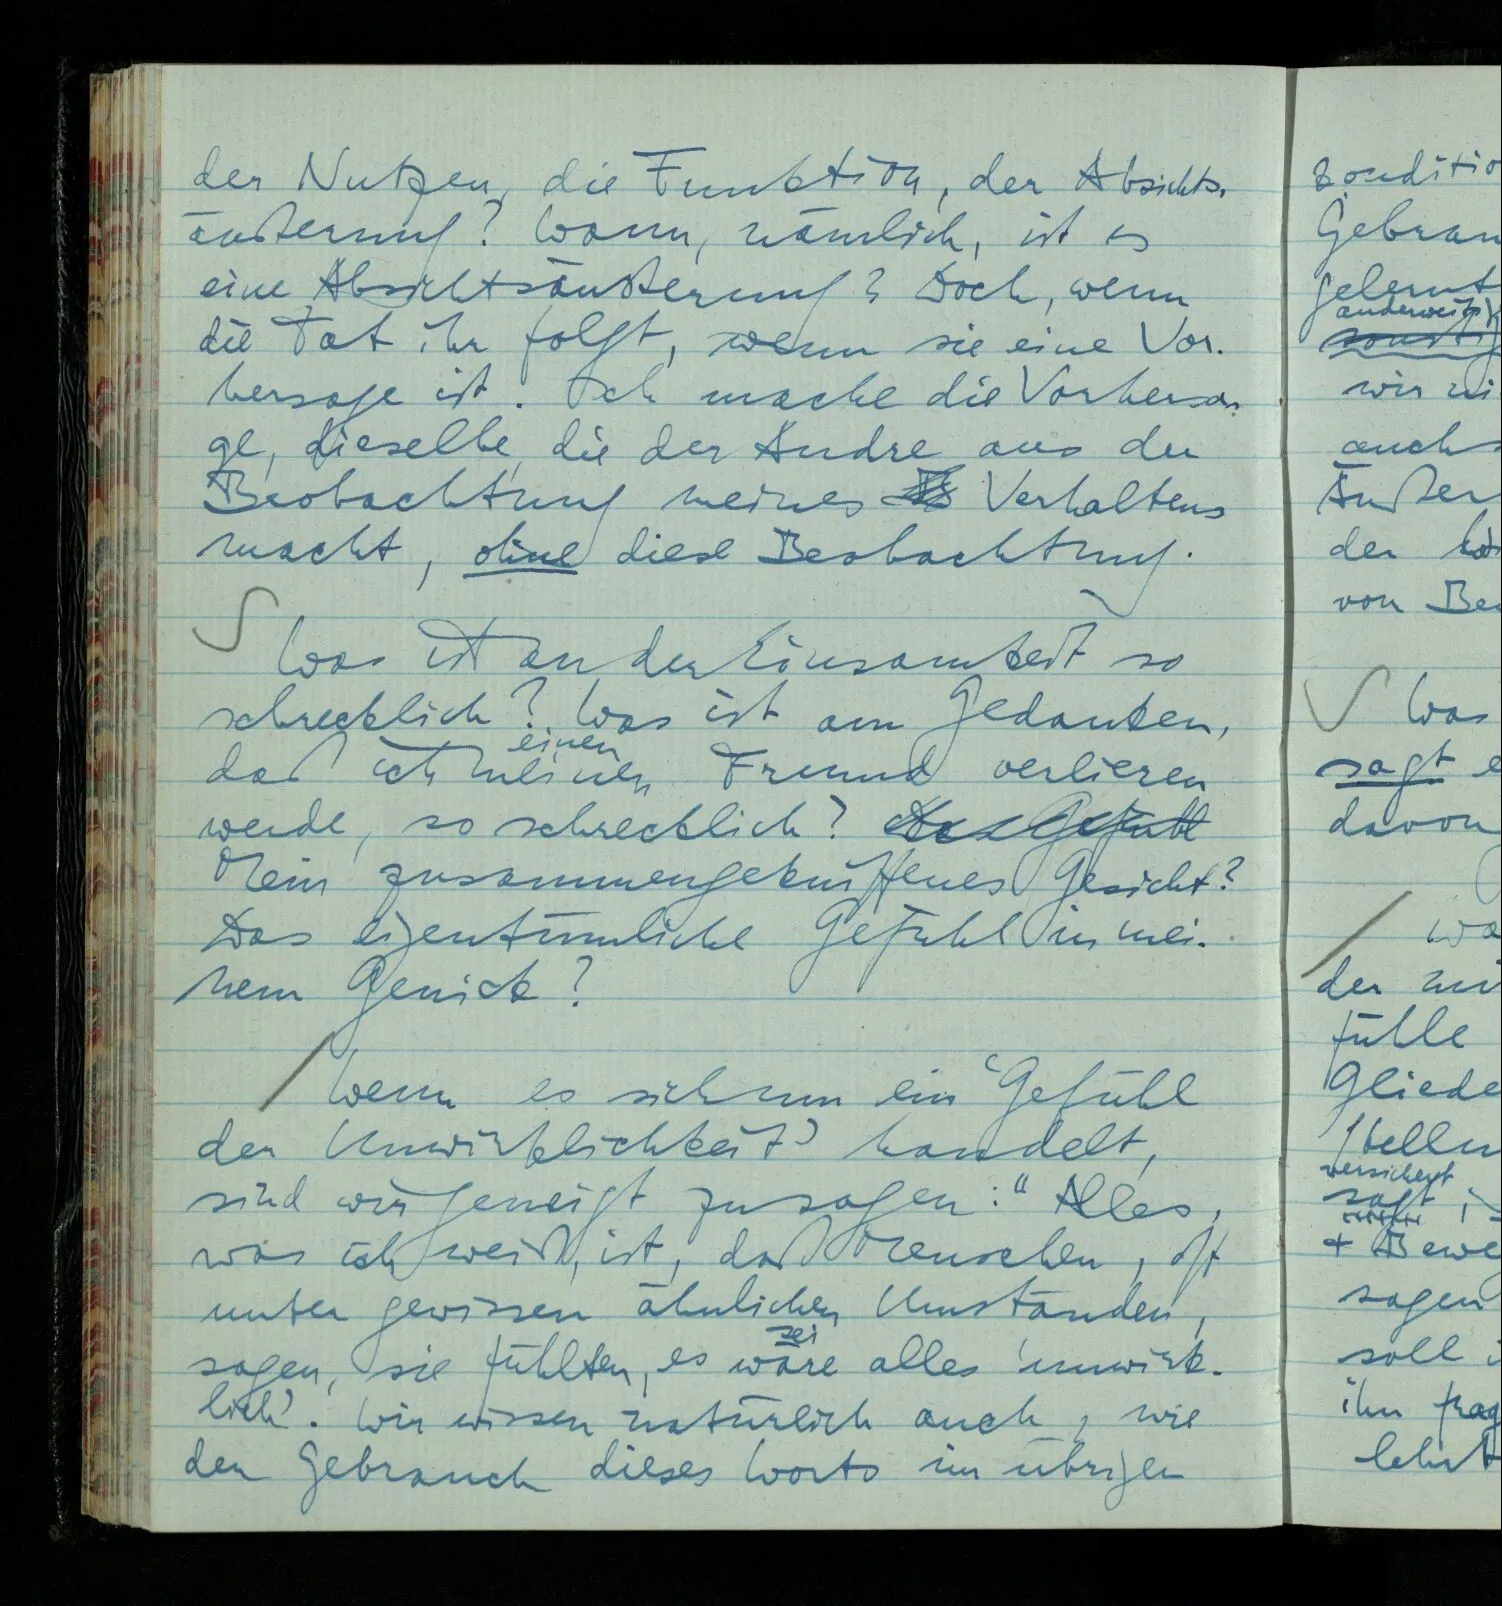 der Nutzen, die Funktion, der Absichts-
äußerung? Wann, nämlich, ist es
eine Absichtsäußerung? Doch, wenn
die Tat ihr folgt, wenn sie eine Vor-
hersage ist. Ich mache die Vorhersa-
ge, dieselbe, die der Andre aus der
Beobachtung meines Verhaltens
macht, ohne diese Beobachtung.
Was ist an der Einsamkeit so
schrecklich? Was ist am Gedanken,
einen
daß ich meinen Freund verlieren
werde, so schrecklich? Das Gefühl
Mein zusammengekniffenes Gesicht?
Das eigentümliche Gefühl in mei-
nem Genick?
Wenn es sich um ein 'Gefühl
der Unwirklichkeit' handelt,
sind wir geneigt zu sagen: "Alles,
was ich weiß, ist, daß Menschen, oft
unter gewissen ähnlichen Umständen,
sei
sagen, sie fühlten, es wäre alles 'unwirk-
lich'. Wir wissen natürlich auch, wie
der Gebrauch dieses Worts im übrigen
konditio
Gebrau
gelernt
anderweitig
sonstig
wir ni
auch
Äußer
der
von Be
Was
sagt e
davon
wa
der mi
fülle
Gliede
Stellu
versichert
sagt
+ Bewe
sagen
soll
ihn frag
lehrt